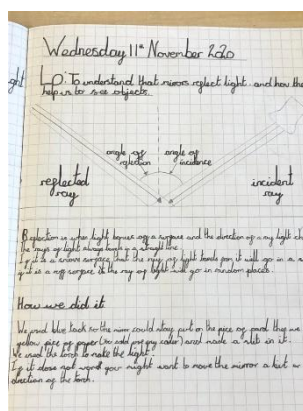 Wednesday 11th November 2020
Lo: To understand that mirrors reflect light and how the
help us to see objects.
angle of
angle of
incidence
reflected
ray
incident
ray
Reflection is when light bounces off a surface and the direction of a ray light
the rays of light always travel in a straight line.
If it is a smooth surface that the ray of light lands on, it will go in a
surface it the ray of light will go in random places.
How we did it
We used blue tack so the mirror could stay put on the pice of card then we
yellow pice of paper (we add any color) and made a slit in it.
We used the torch to make the light.
If it dose not work you might want to move the mirror a bit
direction of the torch.